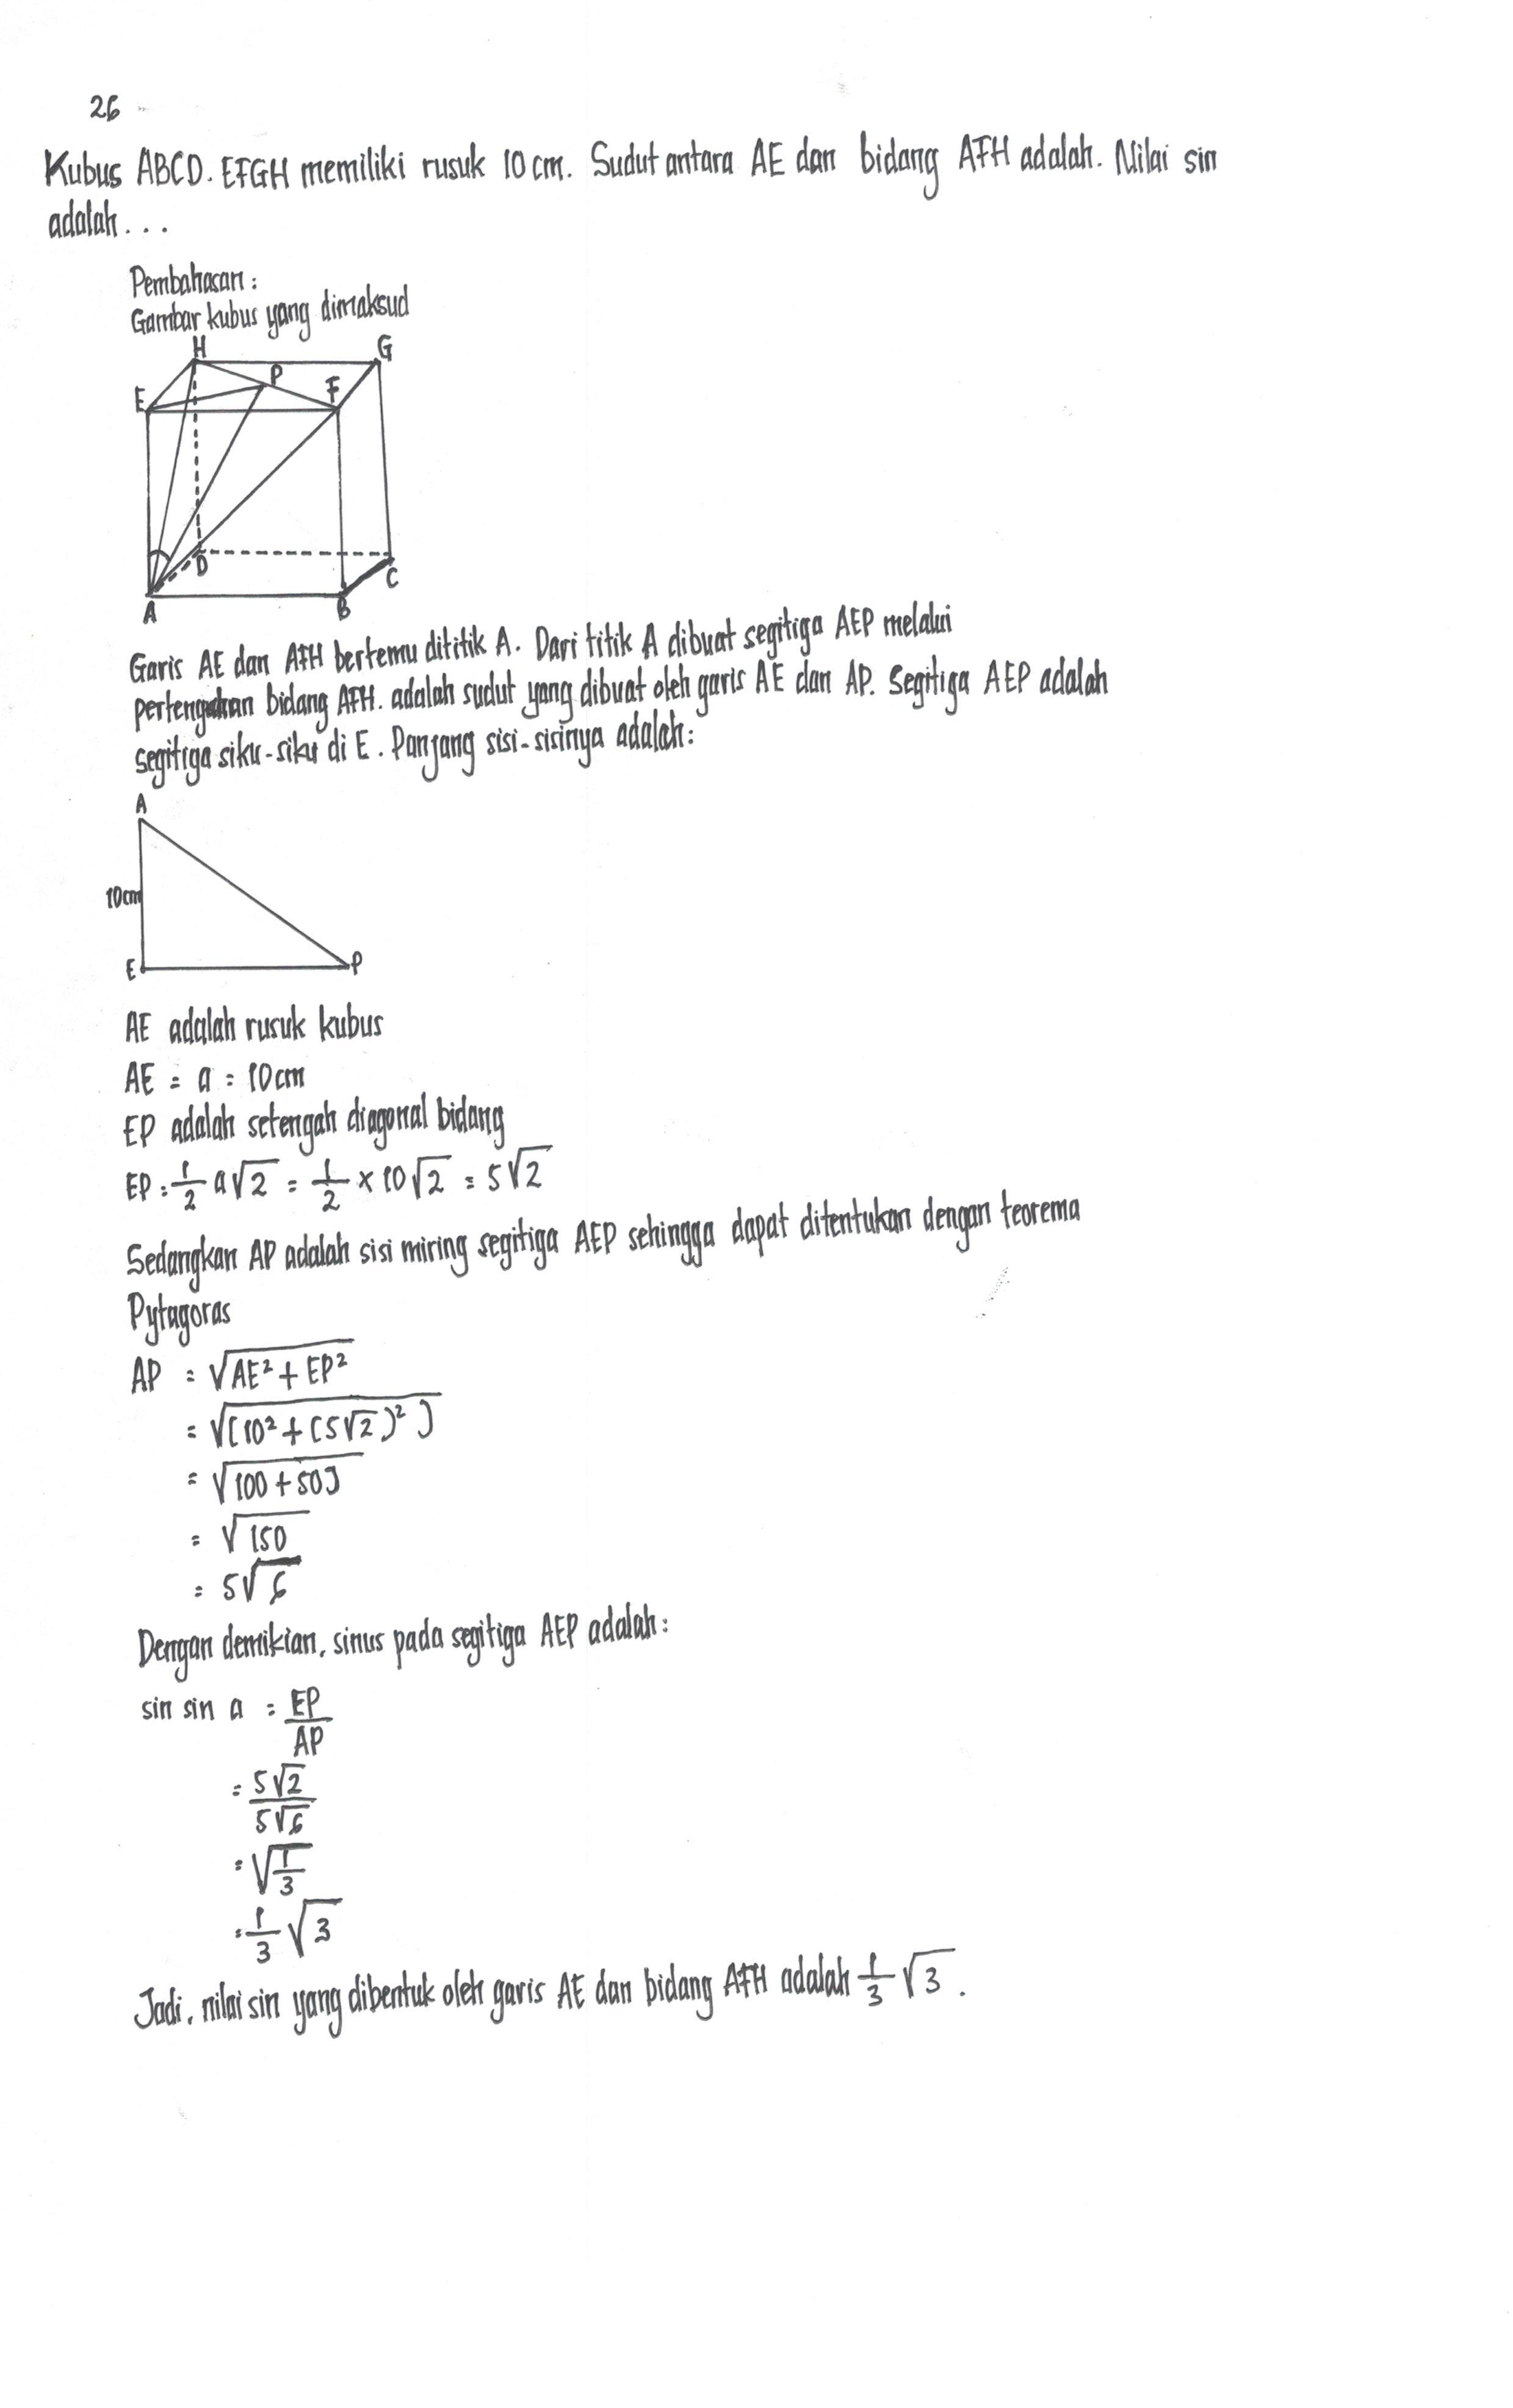 26
Kubus ABCD. EFGH memiliki rusuk 10 cm. Sudut antara AE dan bidang AFH adalah. Nilai sin
adalah...
Pembahasan:
Gambar kubus yang dimaksud
H G
P
E F
D
C
A B
Garis AE dan AFH bertemu dititik A. Dari titik A dibuat segitiga AEP melalui
pertengahan bidang AFH. adalah sudut yang dibuat oleh garis AE dan AP. Segitiga AEP adalah
segitiga siku-siku di E. Panjang sisi-sisinya adalah:
A
10cm
E P
AE adalah rusuk kubus
AE = a = 10cm
EP adalah setengah diagonal bidang
EP = 1/2 a√2 = 1/2 × 10√2 = 5√2
Sedangkan AP adalah sisi miring segitiga AEP sehingga dapat ditentukan dengan teorema
Pytagoras
AP = √AE² + EP²
= √[10² + (5√2)²]
= √100 + 50]
= √150
= 5√6
Dengan demikian, sinus pada segitiga AEP adalah:
sin sin a = EP/AP
= 5√2/5√6
= √1/3
= 1/3 √3
Jadi, nilai sin yang dibentuk oleh garis AE dan bidang AFH adalah 1/3 √3.